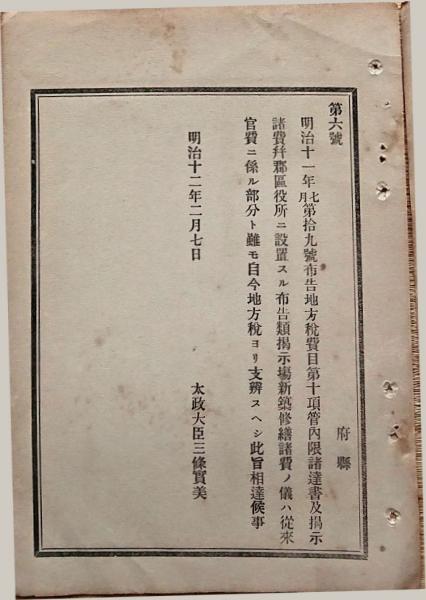 第六號
府縣
明治十一年七月第拾九號布告地方稅費目第十項管內限諸達書及揭示
諸費幷郡區役所ニ設置スル布告類揭示場新築修繕諸費ノ儀ハ從來
官費ニ係ル部分ト雖モ自今地方稅ヨリ支辨スヘシ此旨相達候事
明治十二年二月七日
太政大臣三條實美